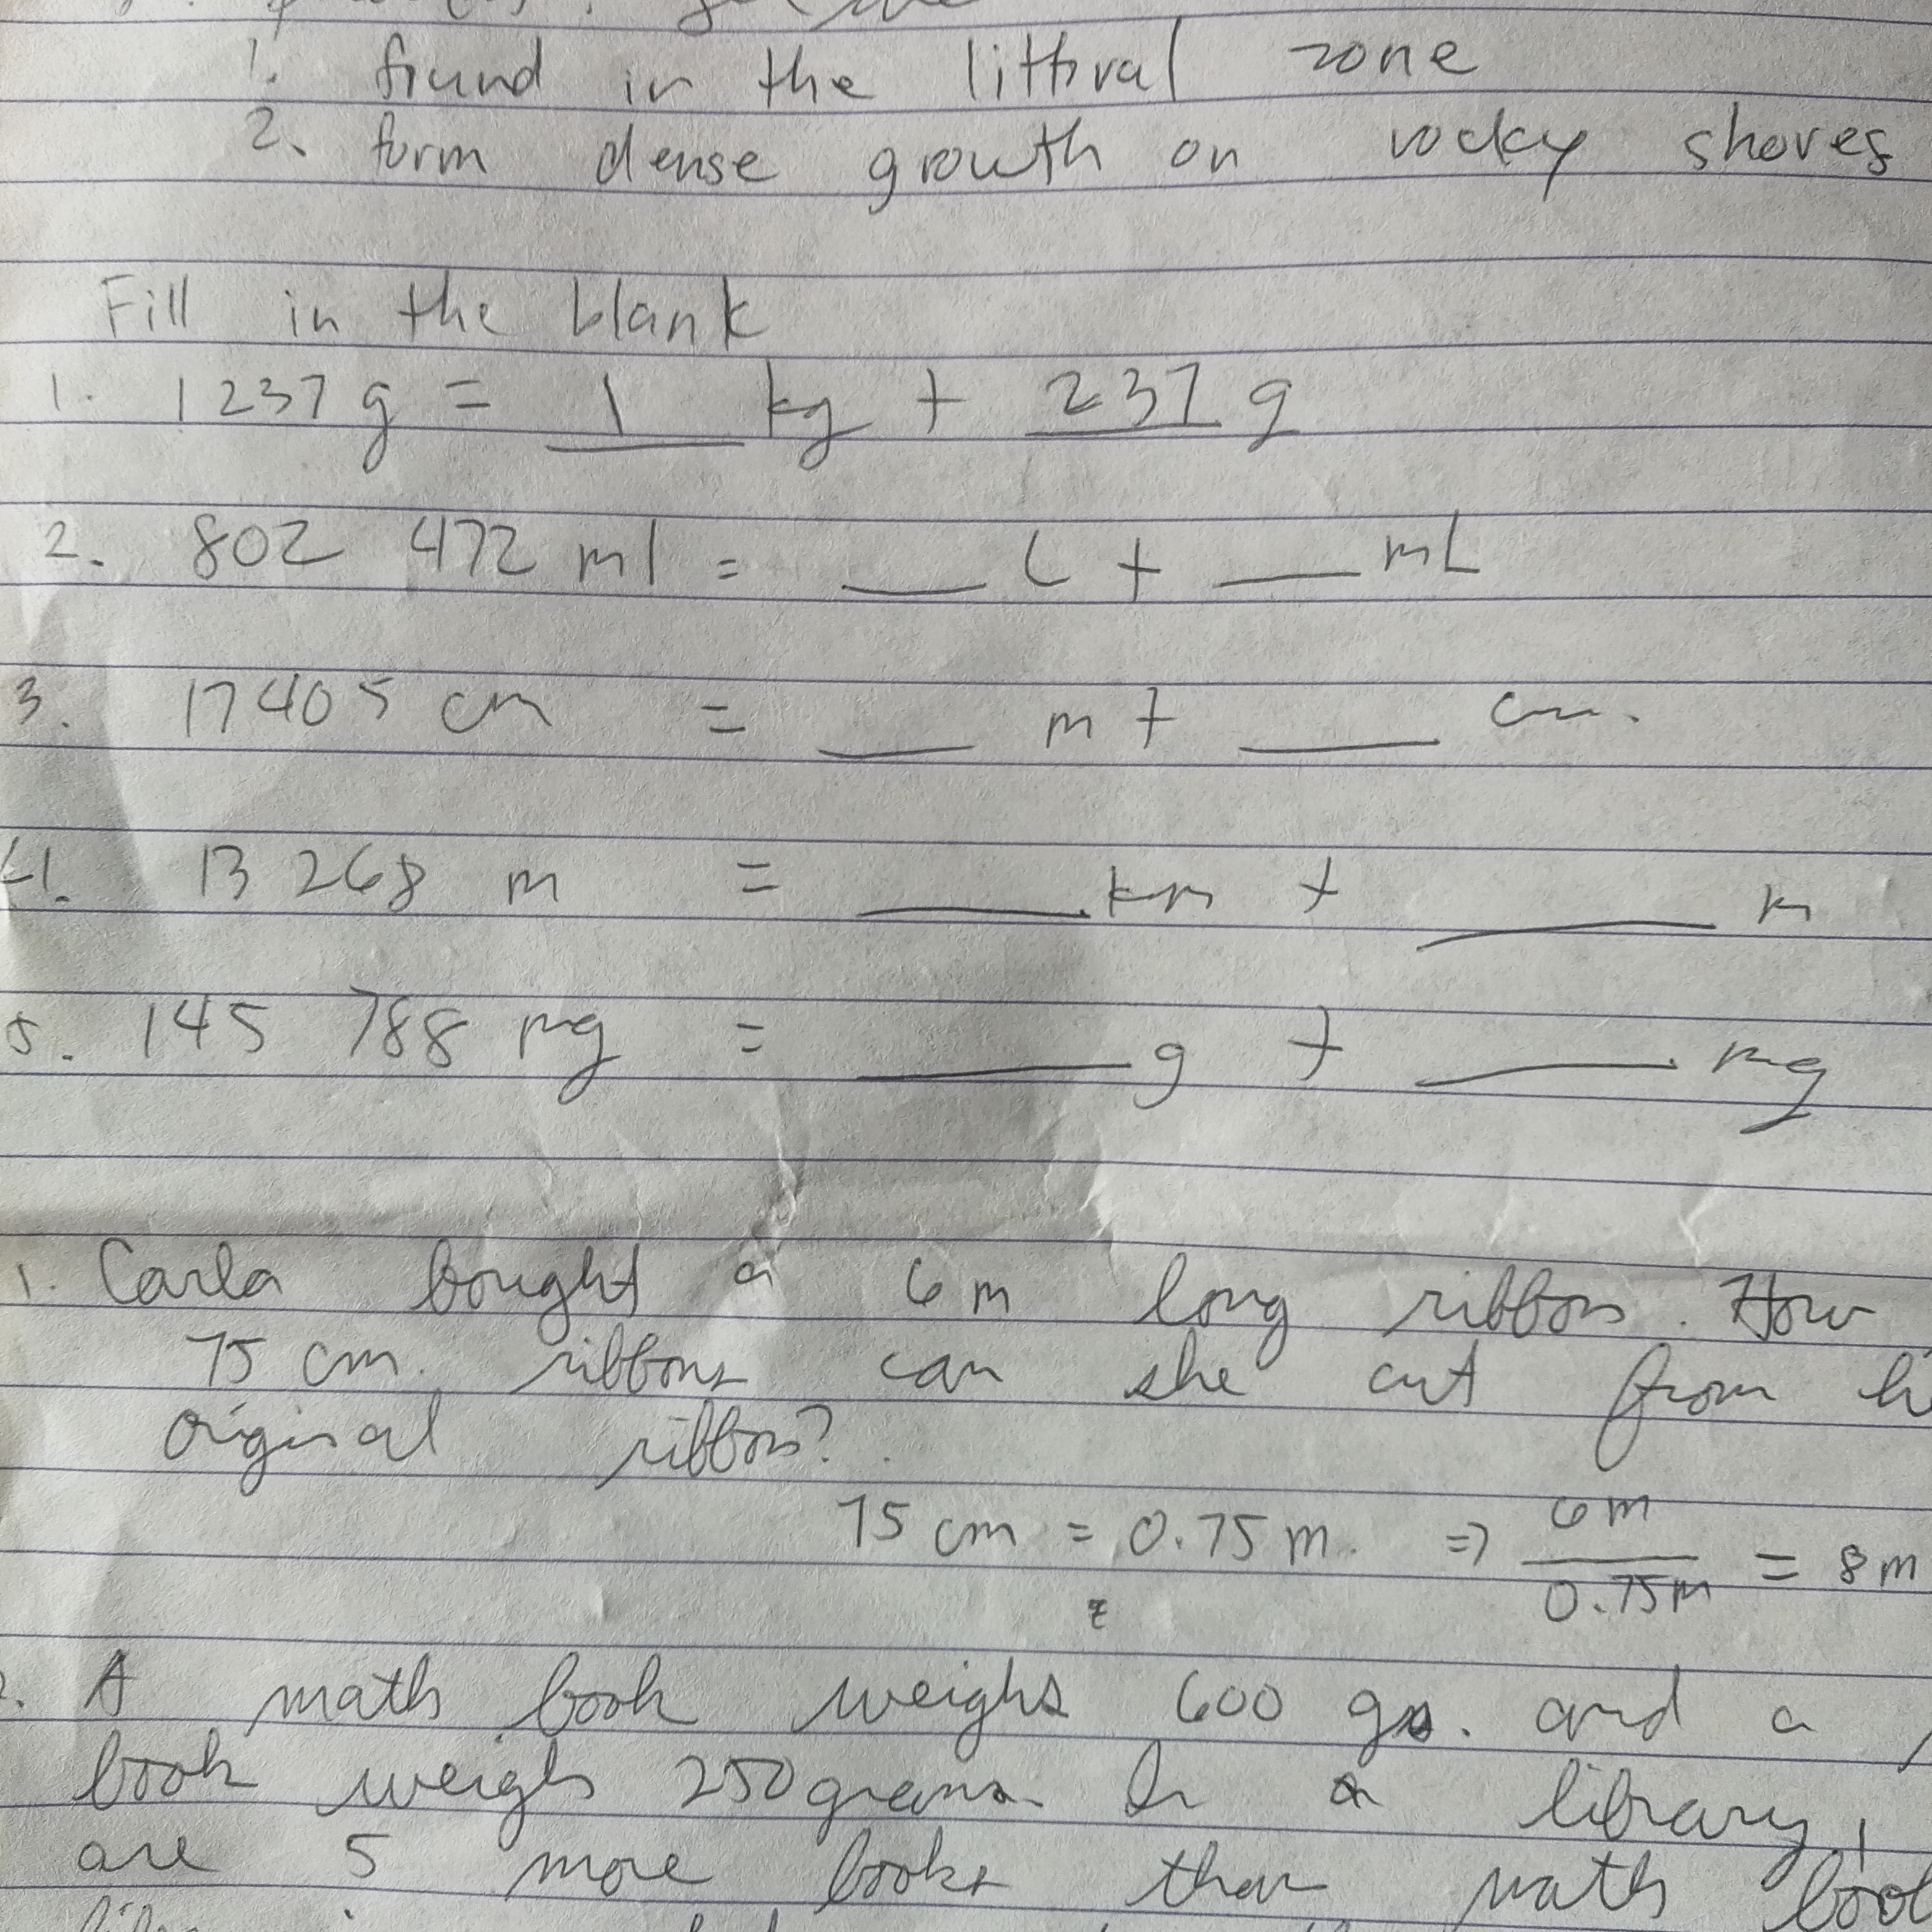 1. found in the littoral zone
2. form dense growth on rocky shores
Fill in the blank
1. 1237 g = 1 kg + 237 g
2. 802 472 ml = ___ L + ___ mL
3. 17405 cm = ___ m + ___ cm.
4. 13 268 m = ___ km + ___ m
5. 145 788 mg = ___ g + ___ mg
1. Carla bought a 6 m long ribbon. How
75 cm. ribbons can she cut from
original ribbon?
75 cm = 0.75 m. ⇒ 6m / 0.75m = 8 m
A math book weighs 600 gs. and a
book weighs 250 grams. In a library,
are 5 more books than math